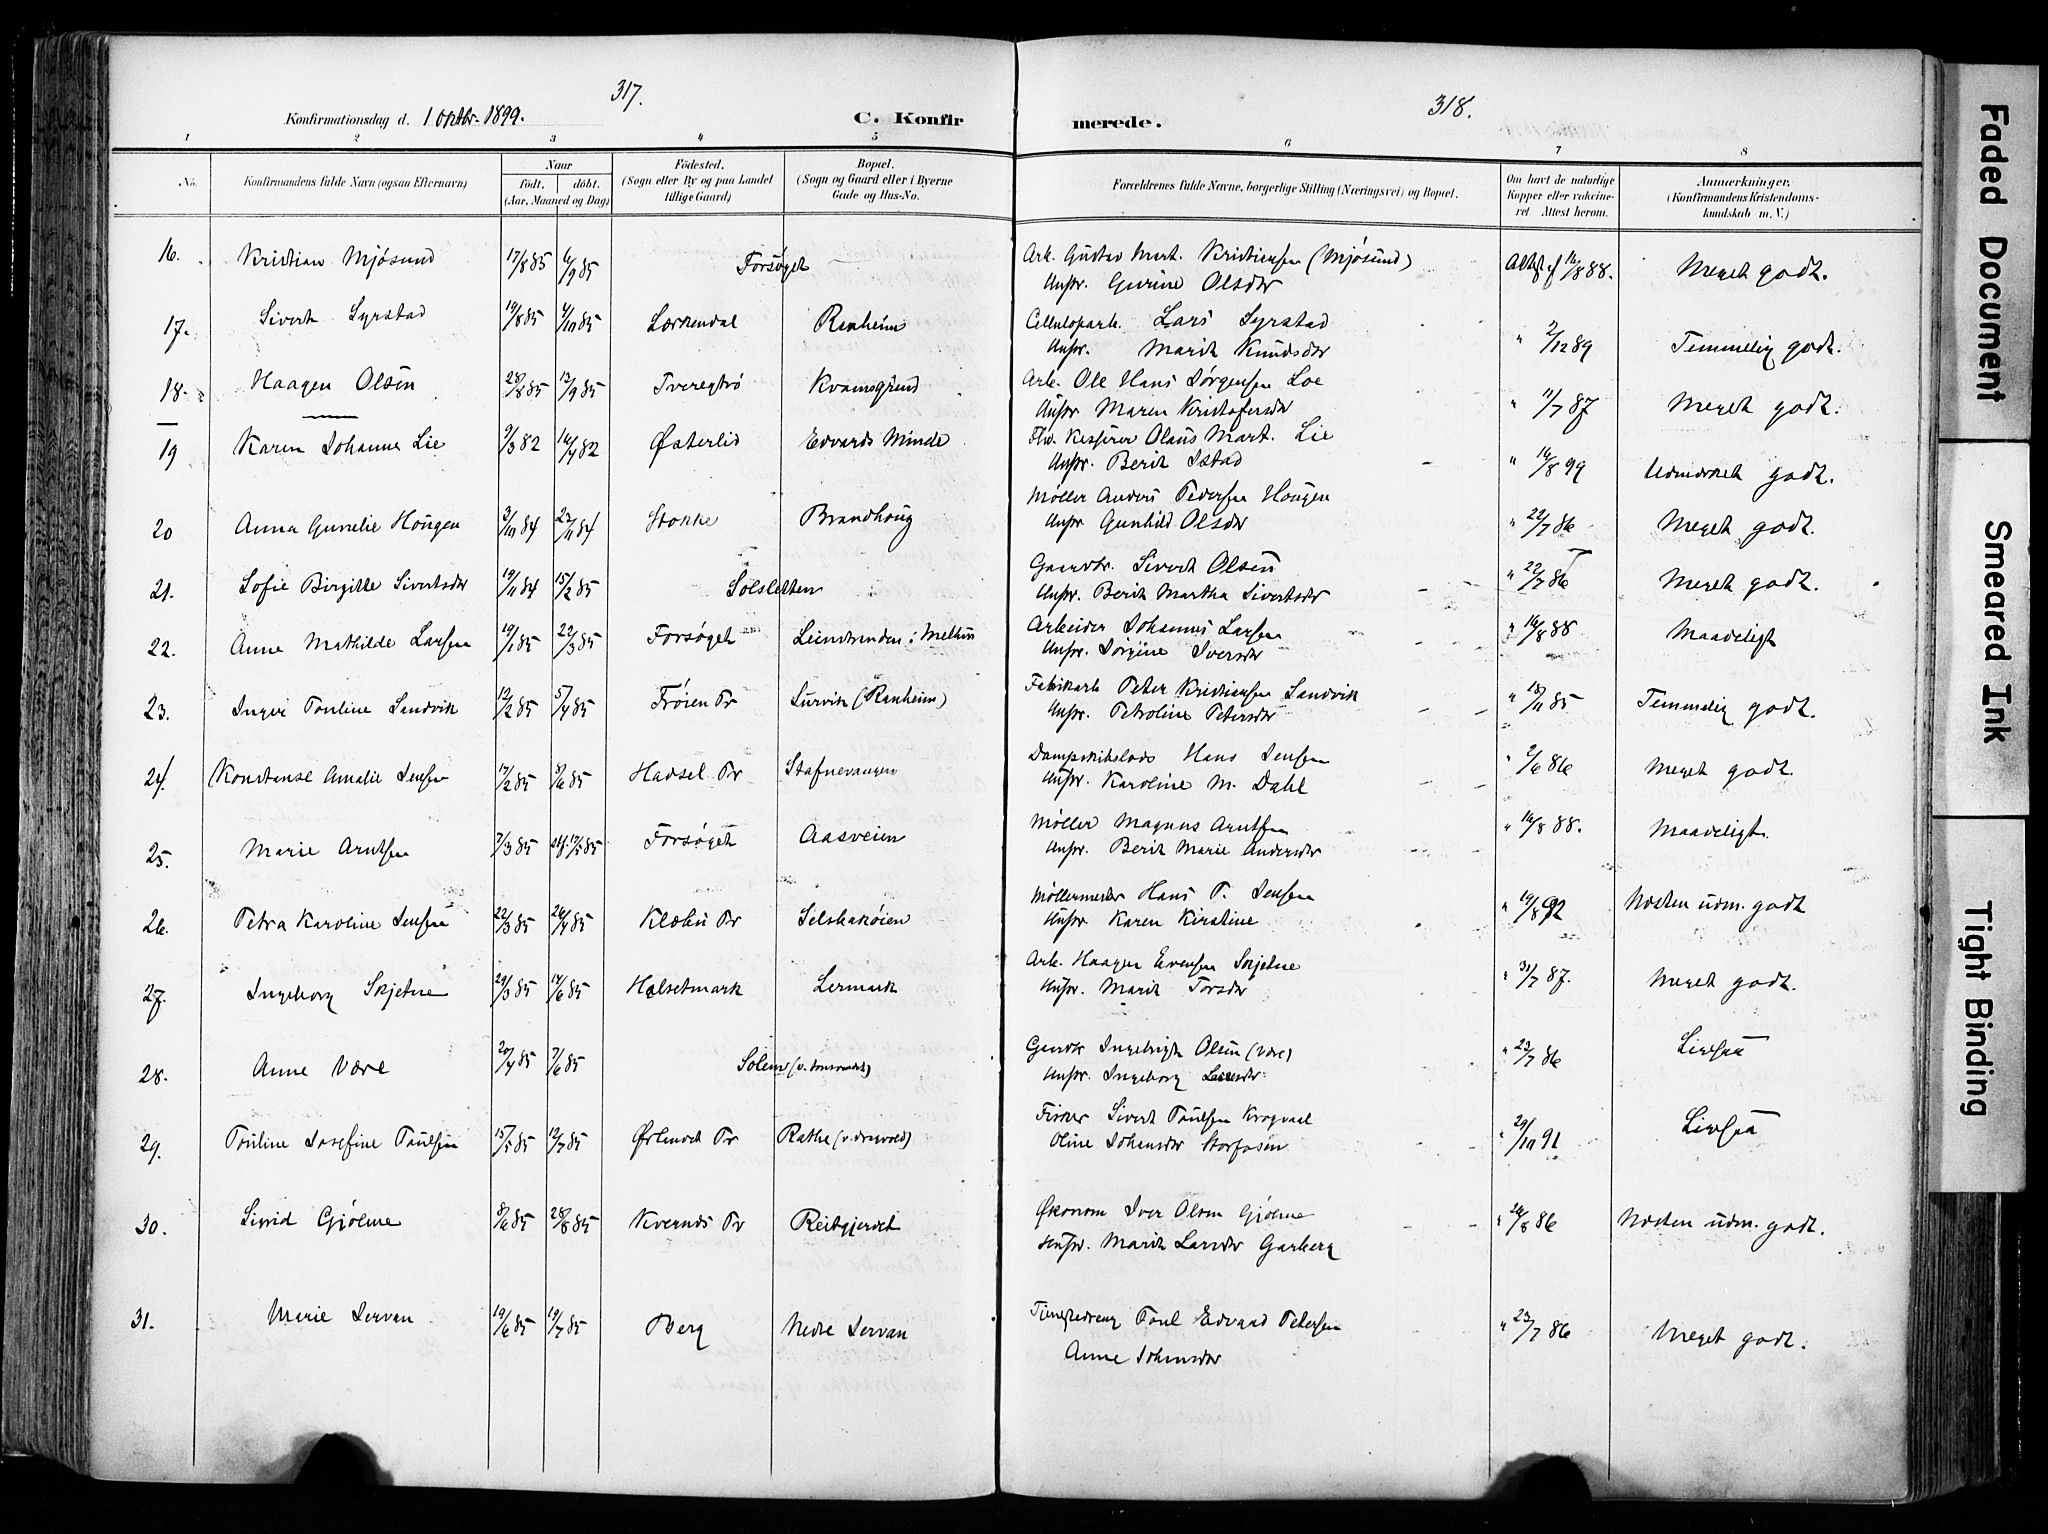 317.
318.
Konfirmationsdag d. 1 oktbr. 1899.
C. Konfirmerede.
1 2 3 4 5 6 7 8
No.
Konfirmandens fulde Navn (ogsaa Efternavn)
Naar
født. døbt.
(Aar, Maaned og Dag)
Fødested.
(Sogn eller By og paa Landet
tillige Gaard)
Bopæl.
(Sogn og Gaard eller i Byerne
Gade og Hus-No.
Forældrenes fulde Navne, borgerlige Stilling (Næringsvei) og Bopæl.
Om havt de naturlige
Kopper eller vakcine-
ret Attest herom.
Anmerkninger.
(Konfirmandens Kristendoms-
kundskab m. V.)
16. Kristian Mjøsund 17/8 85 6/9 85 Forsøget Arb. Gustav Mart. Kristiansen (Mjøsund) Attest af 16/8 88. Meget godt.
Hustr. Gurine Olsdtr
17. Sivert Syrstad 19/8 85 4/10 85 Lerkendal Ranheim Cellulosearb. Lars Syrstad " 2/12 89 Temmelig godt.
Hustr. Marit Knudsdtr
18. Haagen Olsen 28/8 85 13/9 85 Tveregtrø Kvamsgrind Arb. Ole Hans Jørgensen Loe " 11/7 87 Meget godt.
Hustr Maren Kristofersdtr
19 Karen Johanne Lie 9/3 82 16/4 82 Østerlid Edvards Minde Fhv. Kasserer Olaus Mart. Lie " 16/8 99 Udmærket godt.
Hustr. Berit Istad
20 Anna Gurelie Hougen 3/10 84 23/11 84 Stokke Brandhoug Møller Anders Pedersen Hougen " 22/7 86 Meget godt.
Hustr Gunhild Olsdtr
21. Sofie Birgitte Sivertsdtr 19/11 84 15/2 85 Solsletten Gaardbr. Sivert Olsen " 22/7 86 Meget godt.
Hustr. Berit Martha Sivertsdtr
22. Anne Mathilde Larsen 19/1 85 22/3 85 Forsøget Leinstranden i Melhus Arbeider Johannes Larsen " 16/8 88 Maadeligt
Hustr. Jørgine Iversdtr
23. Inger Pauline Sandvik 12/2 85 5/4 85 Frøien Pr Survik (Ranheim) Fabrikarb Peter Kristiansen Sandvik " 18/11 85 Temmelig godt.
Hustr. Petroline Petersdtr
24. Konstanse Amalie Jensen 17/2 85 8/6 85 Hadsel Pr Stafnevangen Dampskibslods Hans Jensen " 2/6 86 Meget godt.
Hustr. Karoline M. Dahl
25. Marie Arntsen 7/3 85 24/5 85 Forsøget Aasveien Møller Magnus Arntsen " 16/8 88. Maadeligt.
Hustr. Berit Marie Andersdtr
26. Petra Karoline Jensen 22/3 85 26/4 85 Klæbu Pr Selsbakøien Møllermester Hans P. Jensen " 19/8 92 Næsten udm. godt
Hustr Karen Kirstine
27. Ingeborg Skjetne 29/3 85 14/6 85 Halsetmark Lermark Arb. Haagen Evensen Skjetne " 31/7 87. Meget godt.
Hustr. Marit Torsdtr
28. Anne Være 20/4 85 7/6 85 Solem Gaardbr Ingebrigt Olsen (Være) " 23/7 86
Hustr. Ingeborg Larsdtr
29. Pauline Josefine Paulsen 15/5 85 12/7 85 Ørlandet Pr Rathe (v. Dragvold) Fisker Sivert Paulsen Krogvaal " 29/10 91
Oline Johansdtr Storfosen
30. Sigrid Gjølme 8/6 85 28/8 85 Kvernes Pr Reitgjerdet Økonom Iver Olsen Gjølme " 24/8 86 Næsten udm. godt.
Hustr. Marit Larsdtr Garberg
31. Marie Jervan 19/6 85 19/7 85 Berg Nedre Jervan Paul Edvard Petersen " 23/7 86 Meget godt.
Anne Johansdtr
Faded Document
Smeared Ink
Tight Binding